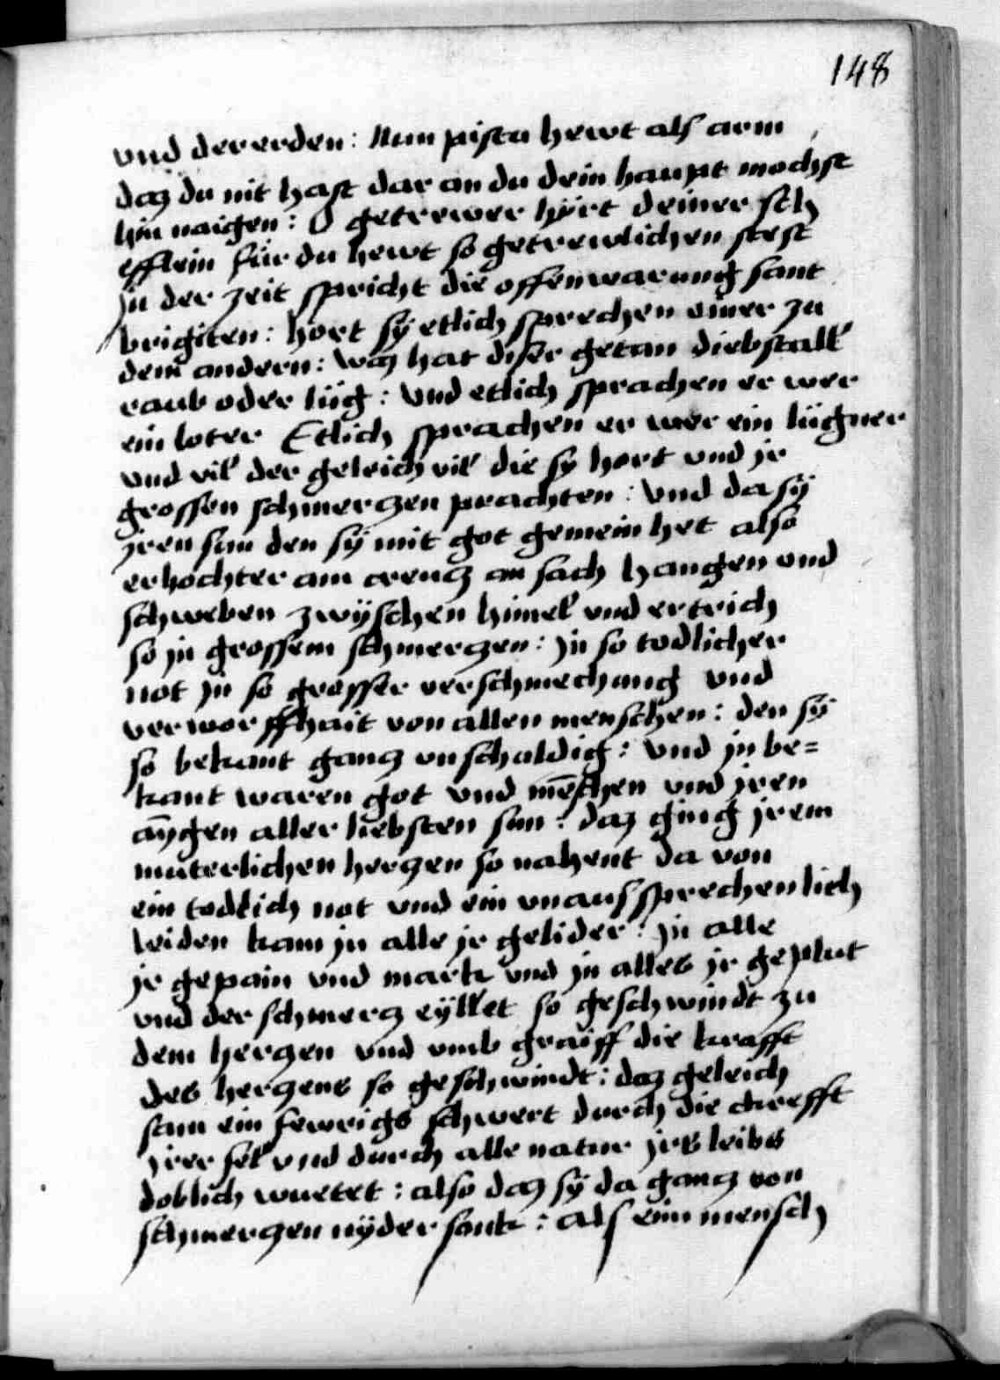 148
vnd der erden : Nun pistu hewt als arm
daz du nit hast dar an du dein haupt mochst
hin naigen : O getrewer hÿrt deiner sch
efflein für du hewt so getrewlichen stest
Jn der zeit spricht die offenwarung sant
brigiten : hort sÿ etlich sprechen einer zu
dem andern : waz hat diser getan diebstall
raub oder lüg : vnd etlich sprachen er wer
ein loter Etlich sprachen er wer ein lügner
vnd vil der geleich vil die sÿ hort vnd jr
grossen schmerczen prachten : vnd da sÿ
jren sun den sÿ mit got gemein het also
erhochter am creucz an sach hangen vnd
schweben zwÿschen himel vnd ertrich
so jn grossem schmerczen : Jn so todlicher
not Jn so grosser verschmechung vnd
verworffhait von allen menschen : den sÿ
so bekant gancz vnschuldig : vnd jn be=
kant waren got vnd mēschen vnd jren
aÿgen aller liebsten sun : daz ging jrem
muterlichen herczen so nahent da von
ein todlich not vnd ein vnaussprechenlich
leiden kam jn alle jr gelider : Jn alle
jr gepain vnd mark vnd jn alles jr geplut
vnd der schmercz eÿllet so geschwindt zu
dem herczen vnd vmb graiff die krafft
des herczens so geschwindt : daz geleich
sam ein fewrigs schwert durch die krefft
jrer sel vnd durch alle natur jrs leibs
doblich wuetet : also daz sÿ da gancz von
schmerczen nÿder sank : als ein mensch